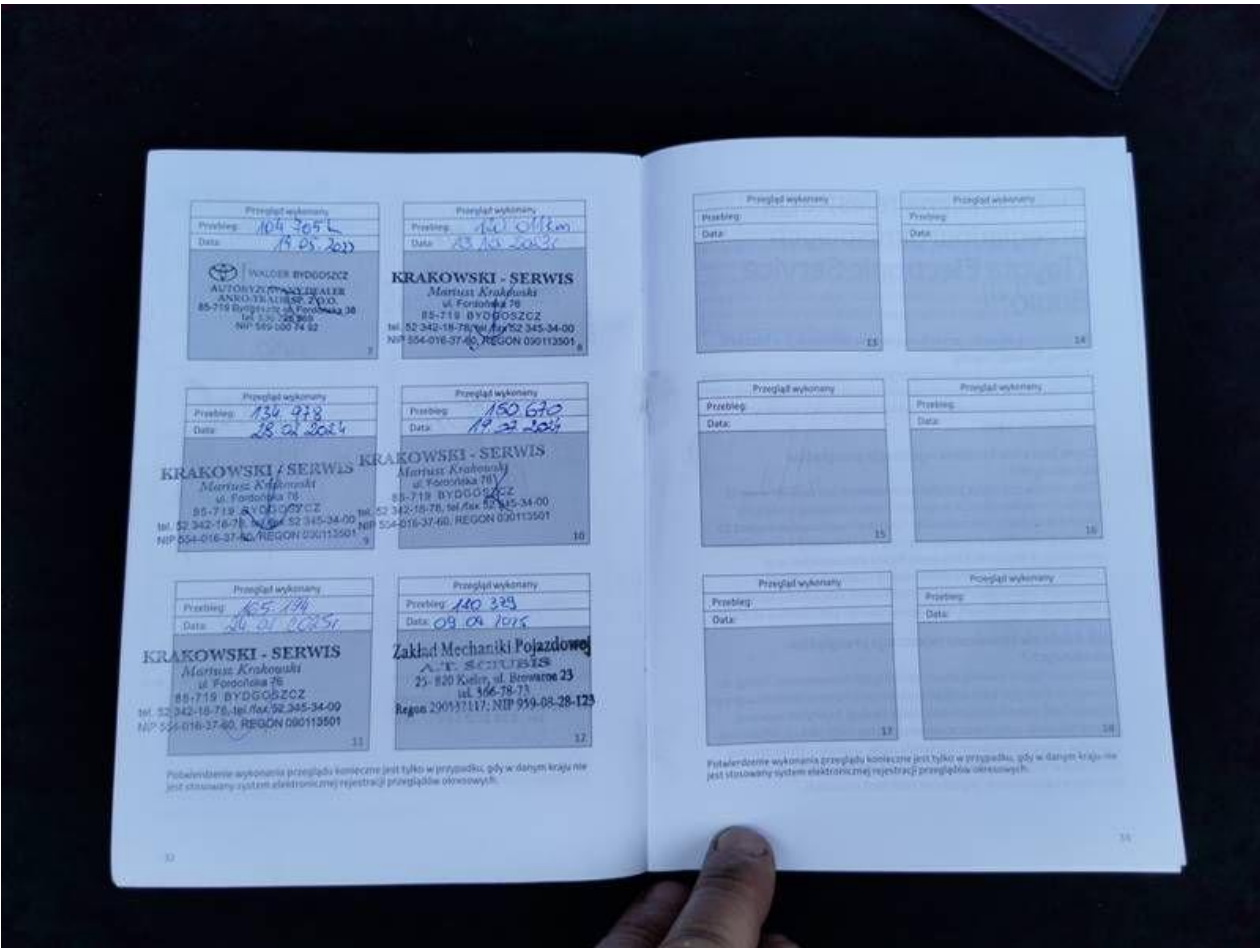 Przegląd wykonany
Przebieg: 104 705
Data: 19.05.2023
WALDER BYDGOSZCZ
AUTORYZOWANY DEALER
85-719 Bydgoszcz ul. Fordońska 38
7
Przegląd wykonany
Przebieg: km
Data:
KRAKOWSKI - SERWIS
Mariusz Krakowski
ul. Fordońska 76
85-719 BYDGOSZCZ
tel. 52 342-18-78, tel./fax 52 345-34-00
NIP 554-016-37-60, REGON 090113501
8
Przegląd wykonany
Przebieg: 134 978
Data: 28 02 2024
KRAKOWSKI - SERWIS
Mariusz Krakowski
ul. Fordońska 76
85-719 BYDGOSZCZ
tel. 52 342-18-78, tel./fax 52 345-34-00
NIP 554-016-37-60, REGON 090113501
9
Przegląd wykonany
Przebieg: 150 670
Data:
KRAKOWSKI - SERWIS
Mariusz Krakowski
ul. Fordońska 76
85-719 BYDGOSZCZ
tel. 52 342-18-78, tel./fax 52 345-34-00
NIP 554-016-37-60, REGON 090113501
10
Przegląd wykonany
Przebieg: 165 194
Data: 24 01 2025r
KRAKOWSKI - SERWIS
Mariusz Krakowski
ul. Fordońska 76
85-719 BYDGOSZCZ
tel. 52 342-18-78, tel./fax 52 345-34-00
NIP 554-016-37-60, REGON 090113501
11
Przegląd wykonany
Przebieg: 379
Data: 09 09 2025
Zakład Mechaniki Pojazdowej
A.T. SCIUBIS
25-820 Kielce, ul. Browarna 23
tel. 366-78-73
Regon 290537117; NIP 959-08-28-123
12
Potwierdzenie wykonania przeglądu konieczne jest tylko w przypadku, gdy w danym kraju nie
jest stosowany system elektronicznej rejestracji przeglądów okresowych.
32
Przegląd wykonany
Przebieg:
Data:
13
Przegląd wykonany
Przebieg:
Data:
14
Przegląd wykonany
Przebieg:
Data:
15
Przegląd wykonany
Przebieg:
Data:
16
Przegląd wykonany
Przebieg:
Data:
17
Przegląd wykonany
Przebieg:
Data:
18
Potwierdzenie wykonania przeglądu konieczne jest tylko w przypadku, gdy w danym kraju nie
jest stosowany system elektronicznej rejestracji przeglądów okresowych.
33